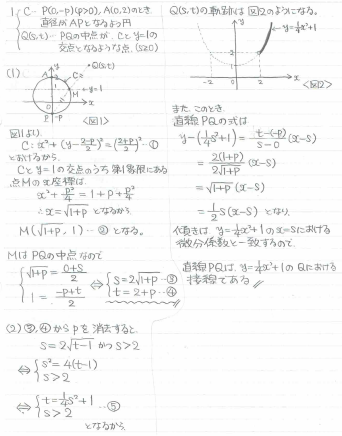 C… P(0,-p)(p>0), A(0,2)のとき
直径がAPとなるような円
Q(s,t)… PQの中点が、Cとy=1の
交点となるような点。(s≥0)
(1)
y
A
2
Q(s,t)
C
M
y=1
x
P
-p
<図1>
図1より、
C: x²+(y-(2-p)/2)²=((2+p)/2)² …①
とおけるから、
Cとy=1の交点のうち第1象限にある
点Mのx座標は、
x²+p²/4=1+p+p²/4
∴x=√(1+p) となるから、
M(√(1+p), 1) …② となる。
MはPQの中点なので
{√(1+p)=(0+s)/2
1=(-p+t)/2
⇔ {s=2√(1+p) …③
t=2+p …④
(2) ③,④からpを消去すると、
s=2√(t-1) かつ s>2
⇔ {s²=4(t-1)
s>2
⇔ {t=1/4s²+1
s>2 …⑤
となるから、
Q(s,t)の軌跡は図2のようになる。
y
y=1/4x²+1
2
-2
2
x
<図2>
また、このとき、
直線PQの式は
y-(1/4s²+1)=(t-(-p))/(s-0)(x-s)
=2(1+p)/2√(1+p)(x-s)
=√(1+p)(x-s)
=1/2s(x-s) となり、
傾きは、y=1/4x²+1のx=sにおける
微分係数と一致するので、
直線PQは、y=1/4x²+1のQにおける
接線である。